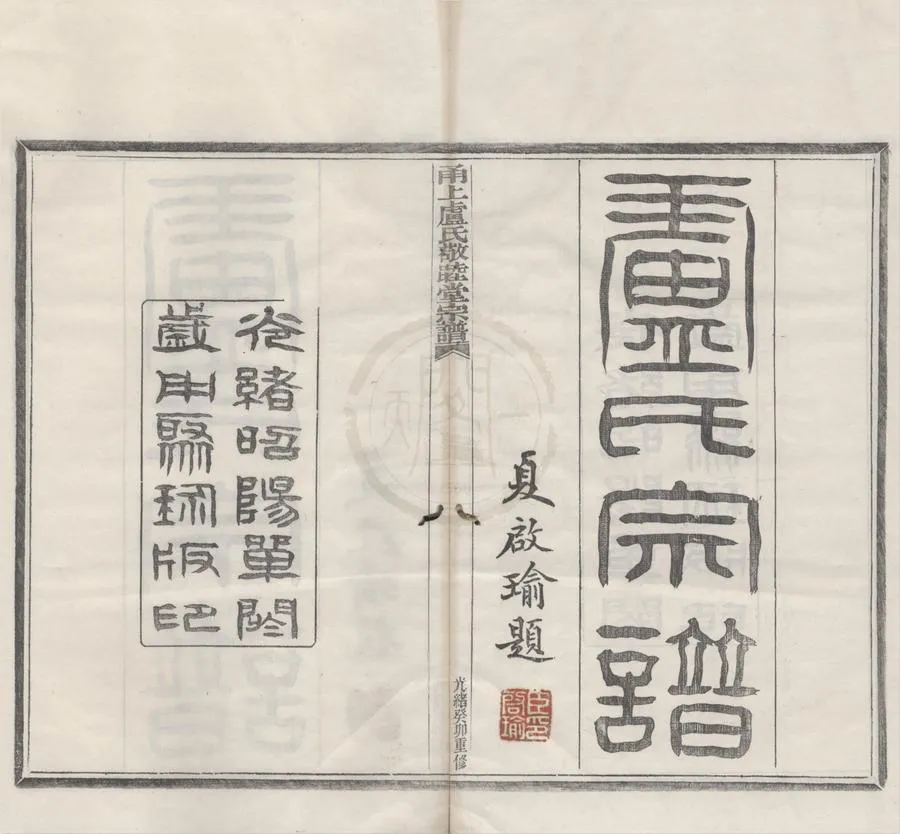 盧氏宗譜
夏啟瑜題
甬上盧氏敬睦堂宗譜
光緒癸卯重修
光緒昭陽單閼
歲用聚珍版印